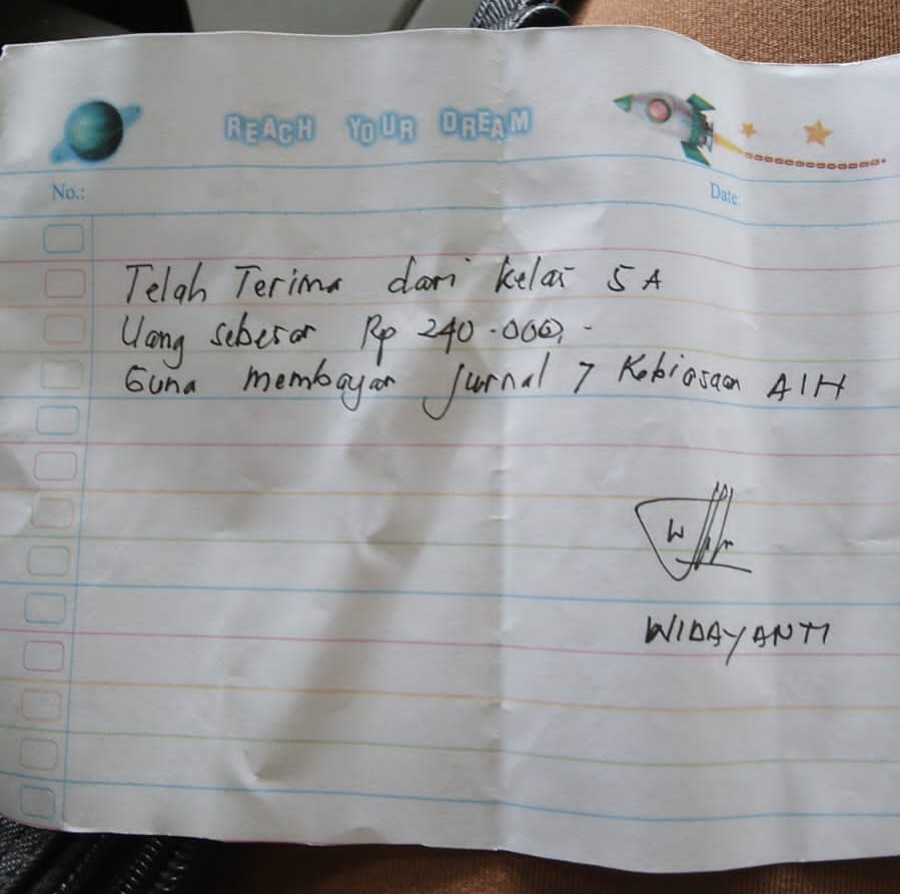 REACH YOUR DREAM
No.:
Date:
Telah Terima dari kelas 5 A
Uang sebesar Rp 240.000,-
Guna membayar Jurnal 7 Kebiasaan AIH
WIDAYANTI